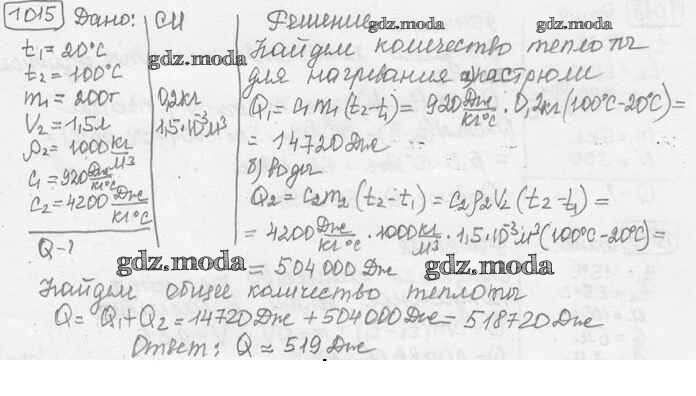 1015 Дано:
t₁ = 20°C
t₂ = 100°C
m₁ = 200г
V₂ = 1,5л
ρ₂ = 1000 кг/м3
c₁ = 920 Дж/кг°C
c₂ = 4200 Дж/кг°C
Q - ?
СИ
0,2 кг
1,5·10⁻³м³
Решение
gdz.moda
gdz.moda
gdz.moda
Найдем количество теплоты
для нагревания а) кастрюли
Q₁ = c₁m₁(t₂-t₁) = 920 Дж/кг°C · 0,2кг(100°C-20°C) =
= 14720 Дж
б) воды
Q₂ = c₂m₂(t₂-t₁) = c₂ρ₂V₂(t₂-t₁) =
= 4200 Дж/кг°C · 1000 кг/м3 · 1,5·10⁻³м³(100°C-20°C) =
gdz.moda
gdz.moda
= 504 000 Дж
Найдем общее количество теплоты
Q = Q₁+Q₂ = 14720 Дж + 504000 Дж = 518720 Дж
Ответ: Q ≈ 519 Дж